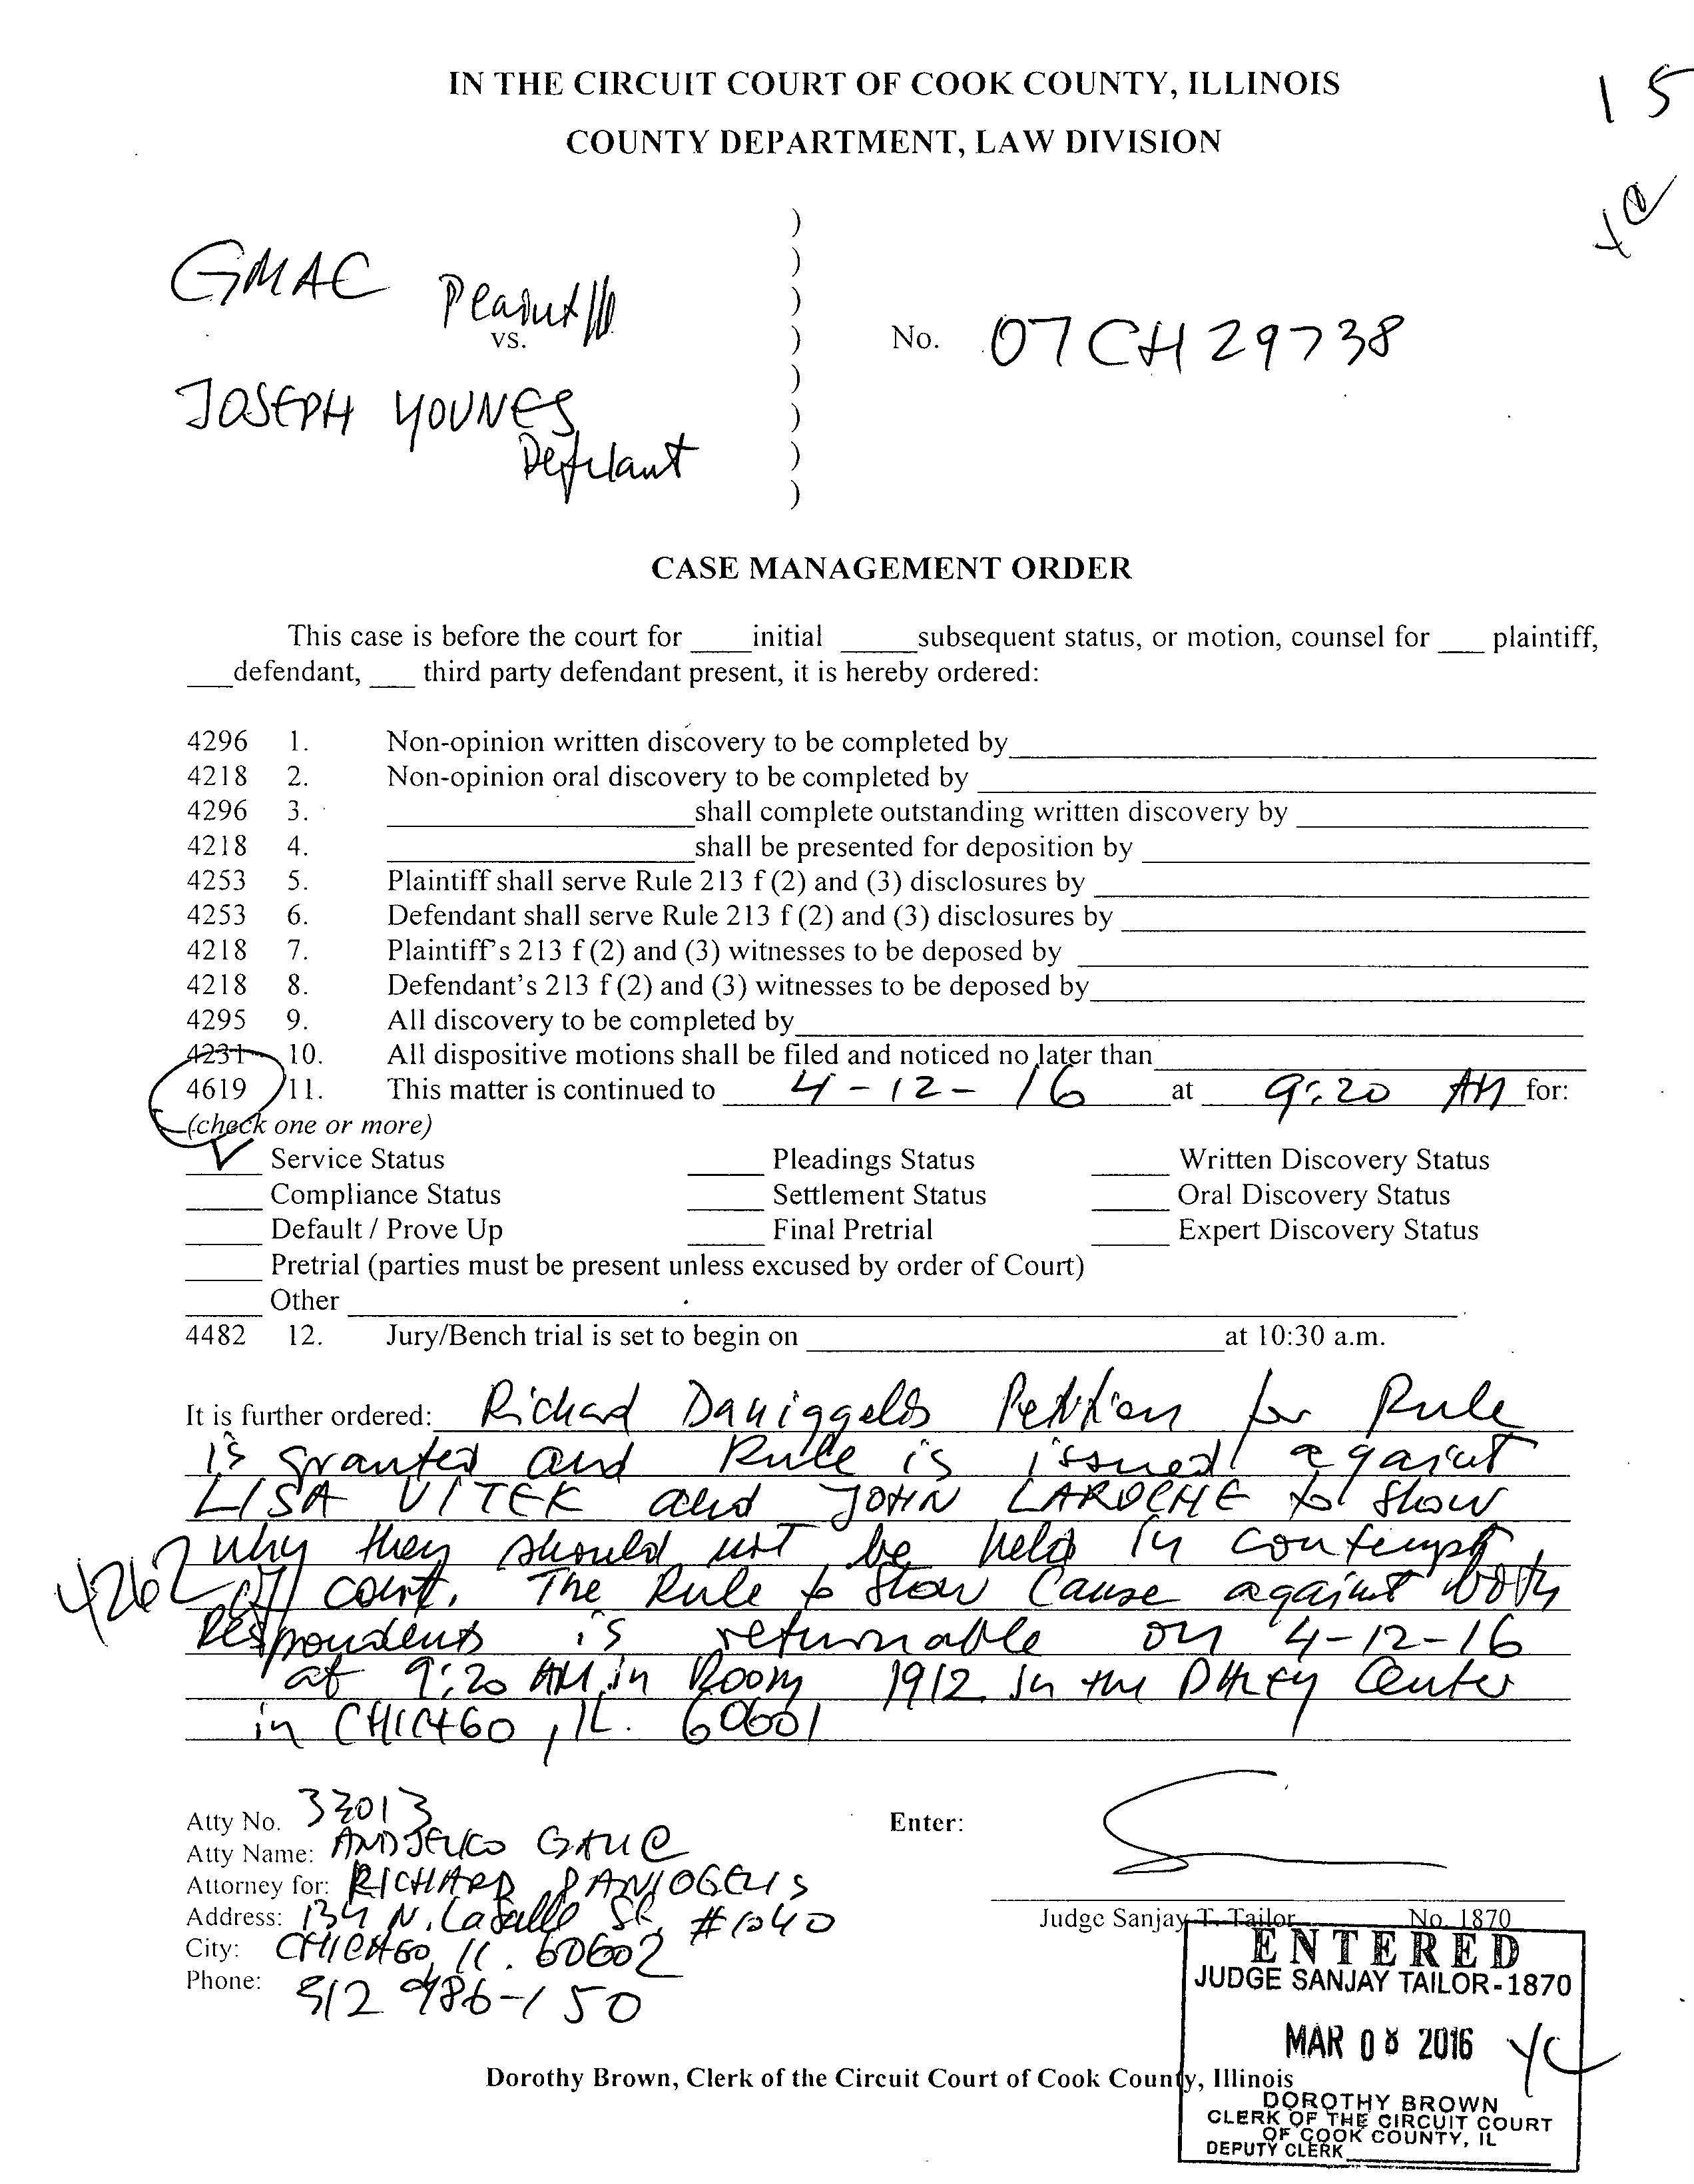 IN THE CIRCUIT COURT OF COOK COUNTY, ILLINOIS
15
COUNTY DEPARTMENT, LAW DIVISION
GMAC
)
)
)
)
)
)
)
)
vs.
No. 07 CH 29738
JOSEPH YOUNES
CASE MANAGEMENT ORDER
This case is before the court for ____initial _____subsequent status, or motion, counsel for ___ plaintiff,
___defendant, ___ third party defendant present, it is hereby ordered:
4296 1. Non-opinion written discovery to be completed by
4218 2. Non-opinion oral discovery to be completed by
4296 3. ____shall complete outstanding written discovery by
4218 4. ____shall be presented for deposition by
4253 5. Plaintiff shall serve Rule 213 f (2) and (3) disclosures by
4253 6. Defendant shall serve Rule 213 f (2) and (3) disclosures by
4218 7. Plaintiff's 213 f (2) and (3) witnesses to be deposed by
4218 8. Defendant's 213 f (2) and (3) witnesses to be deposed by
4295 9. All discovery to be completed by
4231 10. All dispositive motions shall be filed and noticed no later than
4619 11. This matter is continued to 4-12-16 at 9:20 AM for:
(check one or more)
Service Status Pleadings Status Written Discovery Status
Compliance Status Settlement Status Oral Discovery Status
Default / Prove Up Final Pretrial Expert Discovery Status
Pretrial (parties must be present unless excused by order of Court)
Other
4482 12. Jury/Bench trial is set to begin on ____at 10:30 a.m.
It is further ordered: Richard Daniggelis Petition for Rule
is granted and Rule is issued against
LISA VITEK and JOHN LAROCHE to show
why they should not be held in contempt
4262 of court. The Rule to Show Cause against both
Respondents is returnable on 4-12-16
at 9:20 AM in Room 1912 in the Daley Center
in CHICAGO, IL. 60601
Atty No. 33013
Enter:
Atty Name: ANDJELKO GALIC
Attorney for: RICHARD DANIGGELIS
Address: 134 N. LaSalle St, #1040
City: CHICAGO, IL. 60602
Phone: 312 986-150
Judge Sanjay T. Tailor No. 1870
ENTERED
JUDGE SANJAY TAILOR-1870
MAR 08 2016
YC
Dorothy Brown, Clerk of the Circuit Court of Cook County, Illinois
DOROTHY BROWN
CLERK OF THE CIRCUIT COURT
OF COOK COUNTY, IL
DEPUTY CLERK